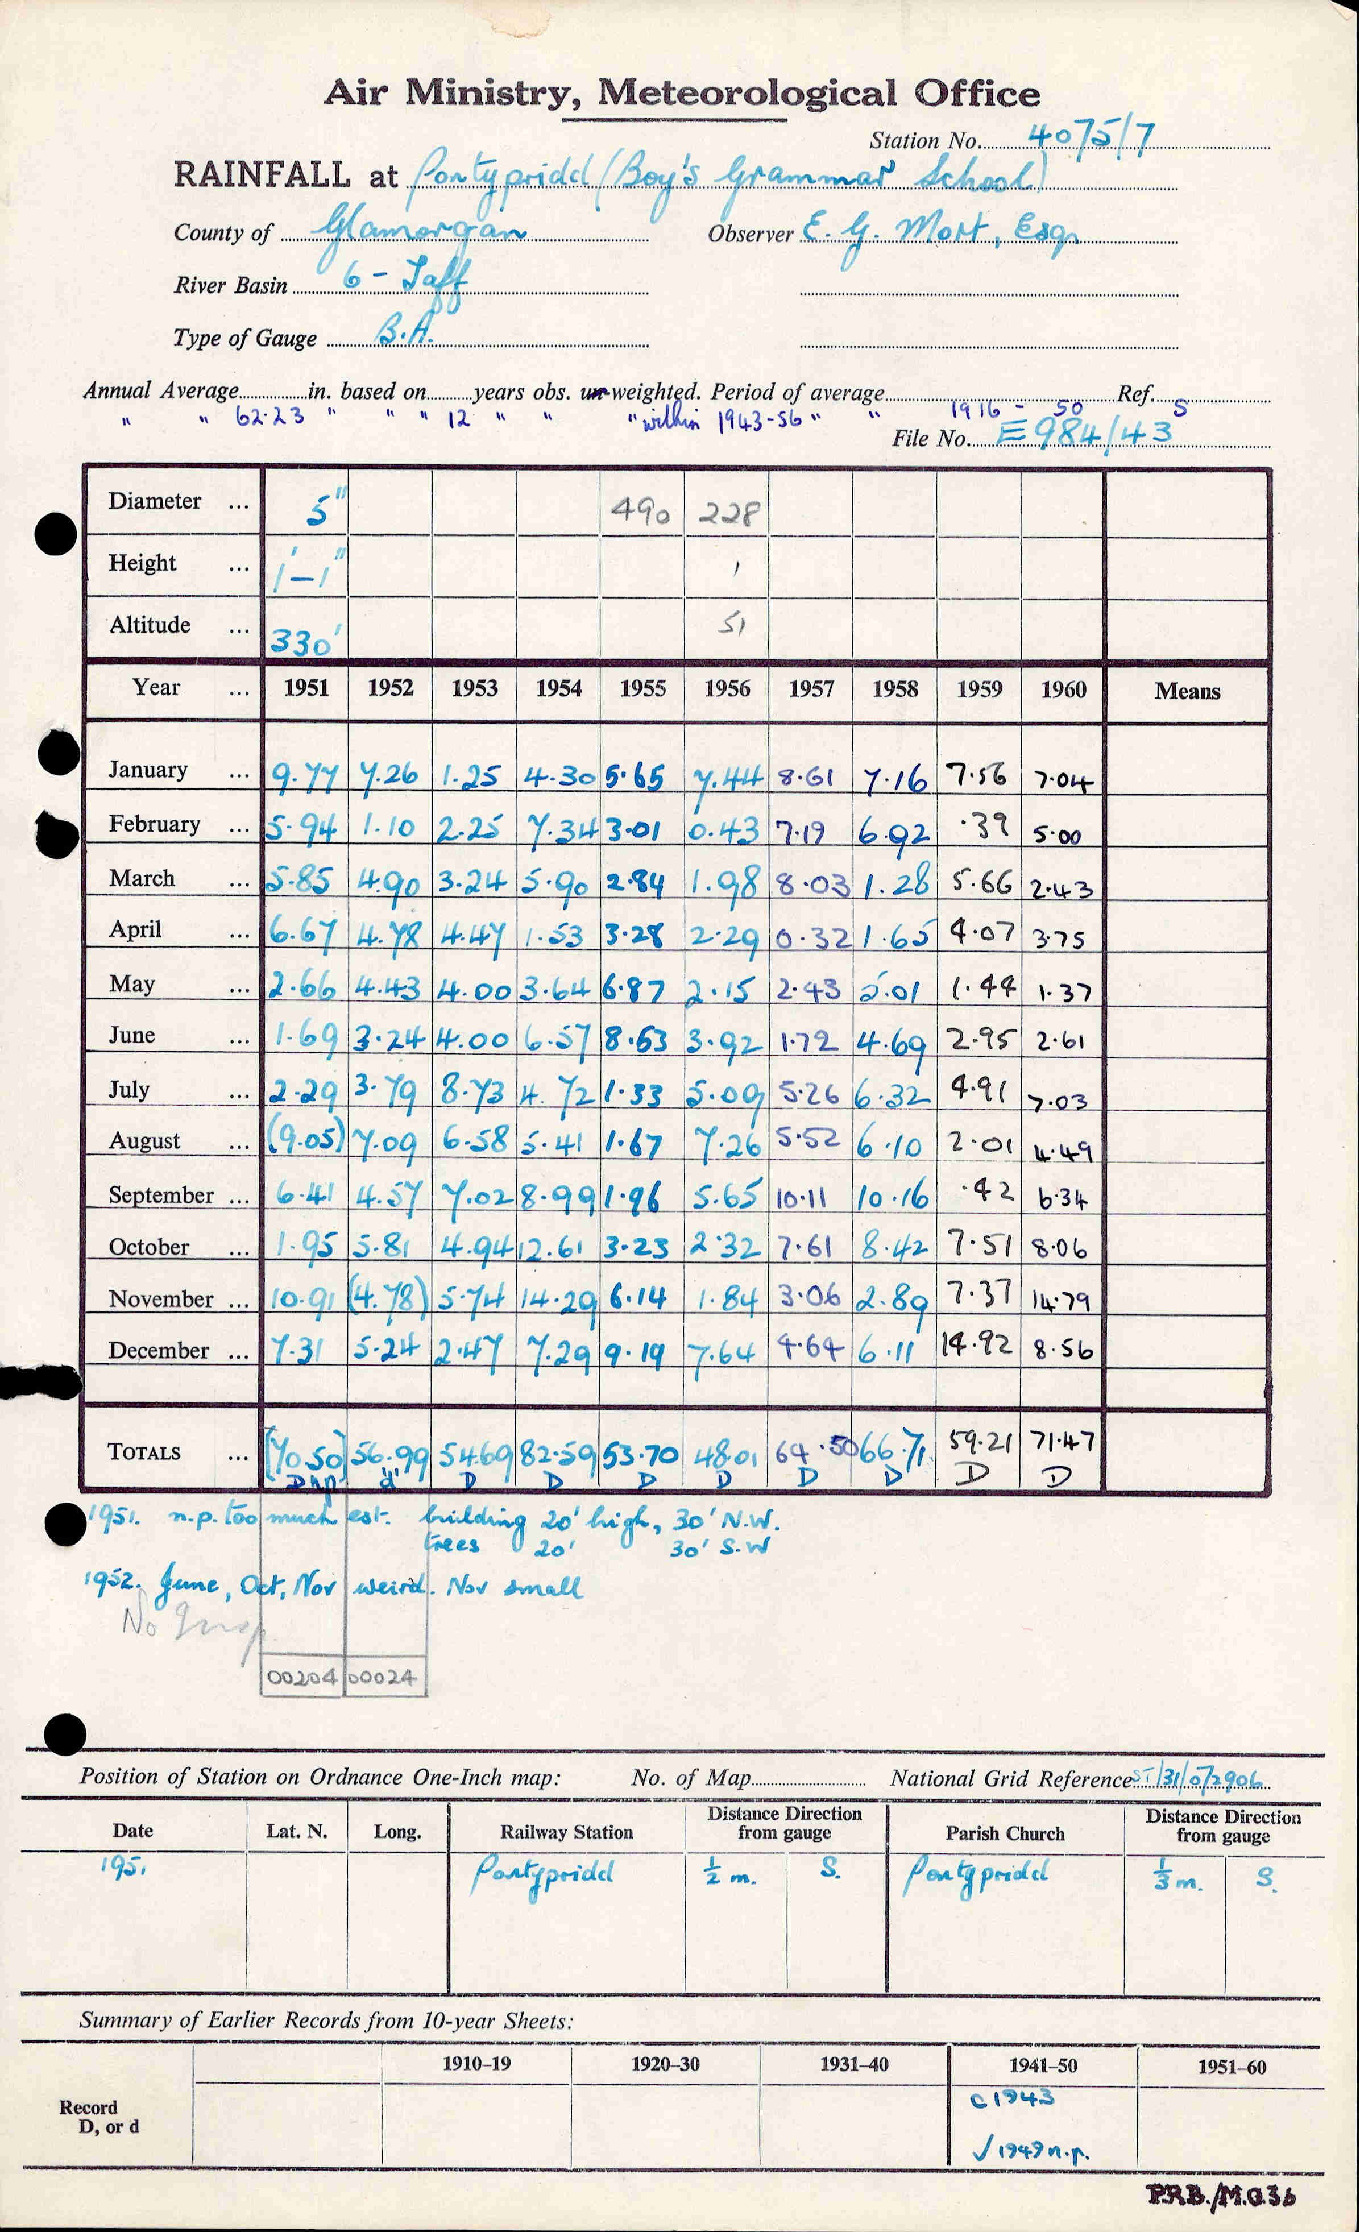 Air Ministry, Meteorological Office
Station No. 4075/7
RAINFALL at Pontypridd (Boy's Grammar School)
County of Glamorgan Observer E. G. Mort, Esq.
River Basin 6 - Taff
Type of Gauge B.A.
Annual Average in. based on years obs. un-weighted. Period of average Ref.
" " 62.23 " " " 12 " " " within 1943-56 " " 1916 - 50 S
File No. E 984/43
Diameter ... 5" 490 228
Height ... 1'-1" 1
Altitude ... 330' 51
Year ... 1951 1952 1953 1954 1955 1956 1957 1958 1959 1960 Means
January ... 9.77 7.26 1.25 4.30 5.65 7.44 8.61 7.16 7.56 7.04
February ... 5.94 1.10 2.25 7.34 3.01 0.43 7.19 6.92 .39 5.00
March ... 5.85 4.90 3.24 5.90 2.84 1.98 8.03 1.28 5.66 2.43
April ... 6.67 4.78 4.47 1.53 3.28 2.29 0.32 1.65 4.07 3.75
May ... 2.66 4.43 4.00 3.64 6.87 2.15 2.43 5.01 1.44 1.37
June ... 1.69 3.24 4.00 6.57 8.53 3.92 1.72 4.69 2.95 2.61
July ... 2.29 3.79 8.73 4.72 1.33 5.09 5.26 6.32 4.91 7.03
August ... (9.05) 7.09 6.58 5.41 1.67 7.26 5.52 6.10 2.01 4.49
September ... 6.41 4.57 7.02 8.99 1.96 5.65 10.11 10.16 .42 6.34
October ... 1.95 5.81 4.94 12.61 3.23 2.32 7.61 8.42 7.51 8.06
November ... 10.91 (4.78) 5.74 14.29 6.14 1.84 3.06 2.89 7.37 14.79
December ... 7.31 5.24 2.47 7.29 9.19 7.64 4.64 6.11 14.92 8.56
TOTALS ... [70.50] 56.99 54.69 82.59 53.70 48.01 64.50 66.71 59.21 71.47
D n.p. 'd' D D D D D D D D
1951. n.p. too much est. building 20' high, 30' N.W.
trees 20' 30' S.W
1952. June, Oct, Nov weird. Nov small
No
00204 00024
Position of Station on Ordnance One-Inch map: No. of Map National Grid Reference ST/31/072906
Date Lat. N. Long. Railway Station Distance Direction from gauge Parish Church Distance Direction from gauge
1951 Pontypridd ½ m. S. Pontypridd ⅓ m. S.
Summary of Earlier Records from 10-year Sheets:
1910–19 1920–30 1931–40 1941–50 1951–60
Record
D, or d
c 1943
√ 1949 n.p.
P.R.B./M.O.36